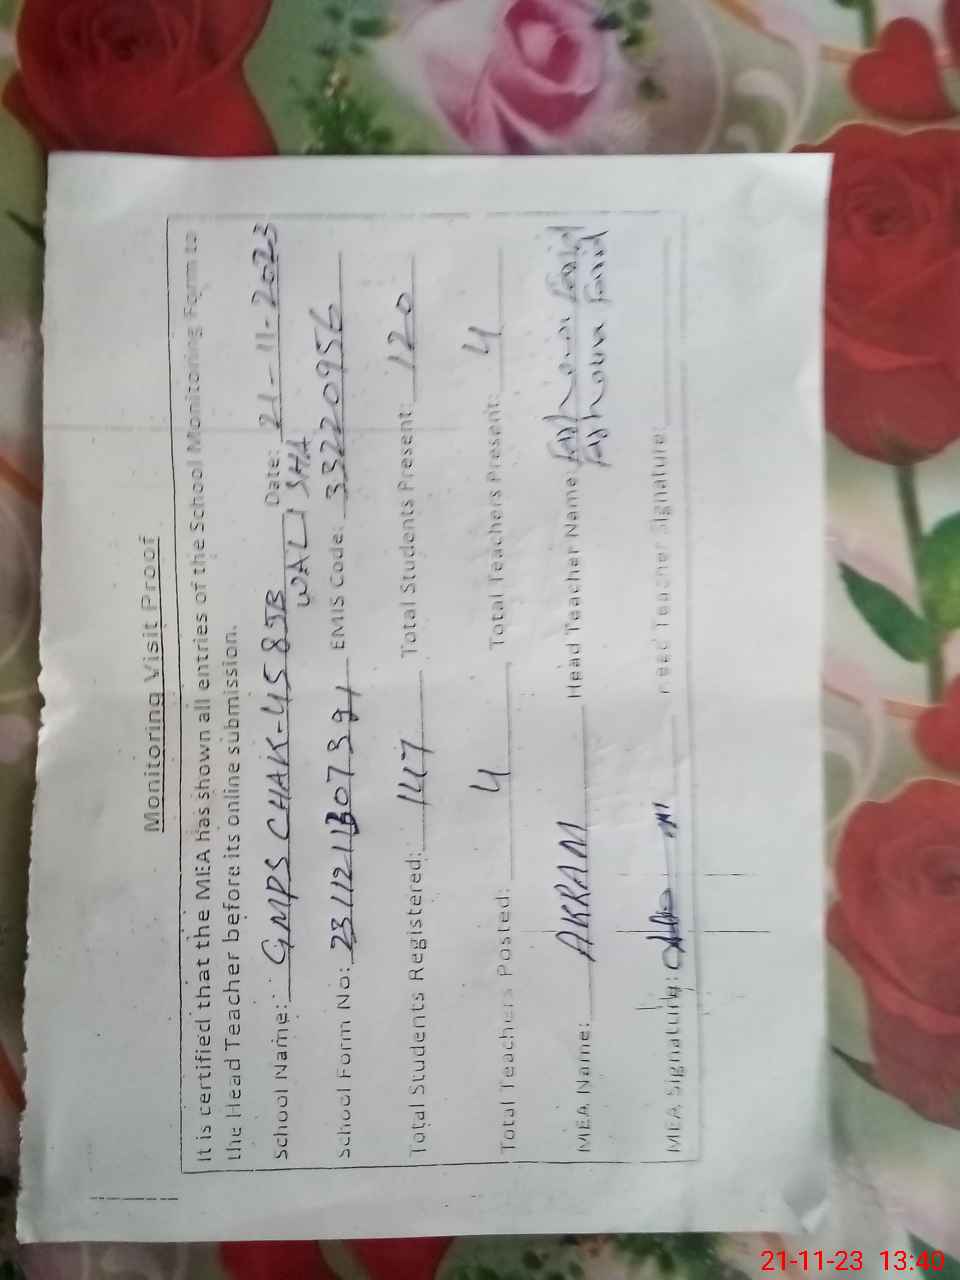 Monitoring Visit Proof
It is certified that the MEA has shown all entries of the School Monitoring Form to
the Head Teacher before its online submission.
School Name: GMPS CHAK-458JB Date: 21-11-2023
WALI SHA
School Form No: EMIS Code: 33220956
Total Students Registered: 147 Total Students Present: 120
Total Teachers Posted: 4 Total Teachers Present: 4
MEA Name: AKRAM Head Teacher Name
MEA Signature: Head Teacher Signature:
21-11-23 13:40